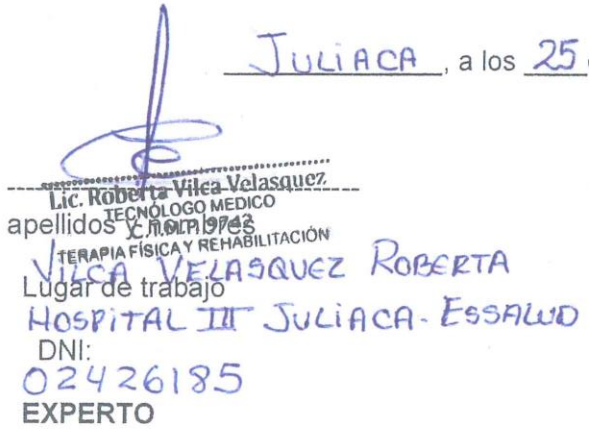 JULIACA, a los 25
Lic. Roberta Vilca Velasquez
TECNÓLOGO MEDICO
C.T.M.P. 9742
apellidos y nombres
TERAPIA FÍSICA Y REHABILITACIÓN
VILCA VELASQUEZ ROBERTA
Lugar de trabajo
HOSPITAL III JULIACA - ESSALUD
DNI:
02426185
EXPERTO